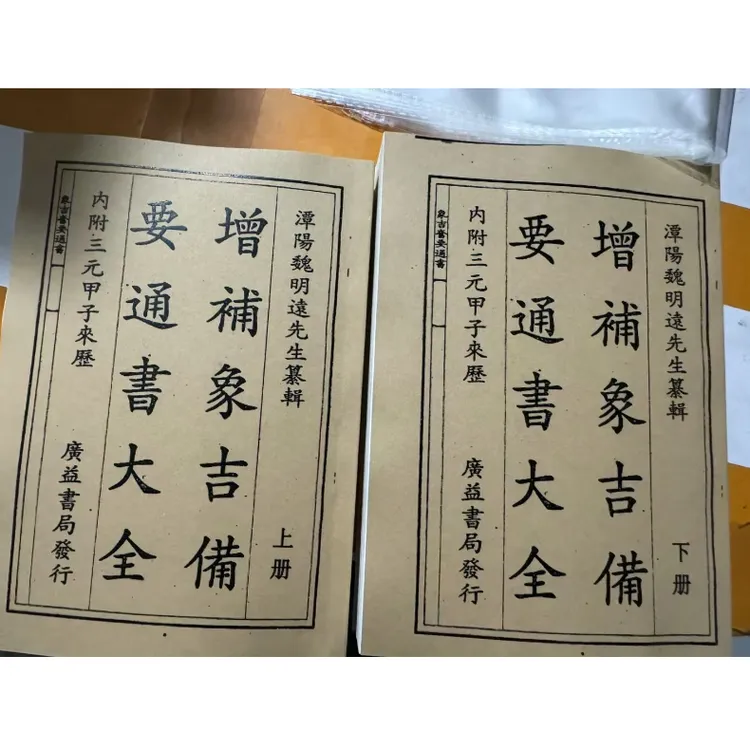 潭陽魏明遠先生纂輯
上册
增補象吉備
要通書大全
內附三元甲子來歷
廣益書局發行
象吉備要通書
潭陽魏明遠先生纂輯
下册
增補象吉備
要通書大全
內附三元甲子來歷
廣益書局發行
象吉備要通書